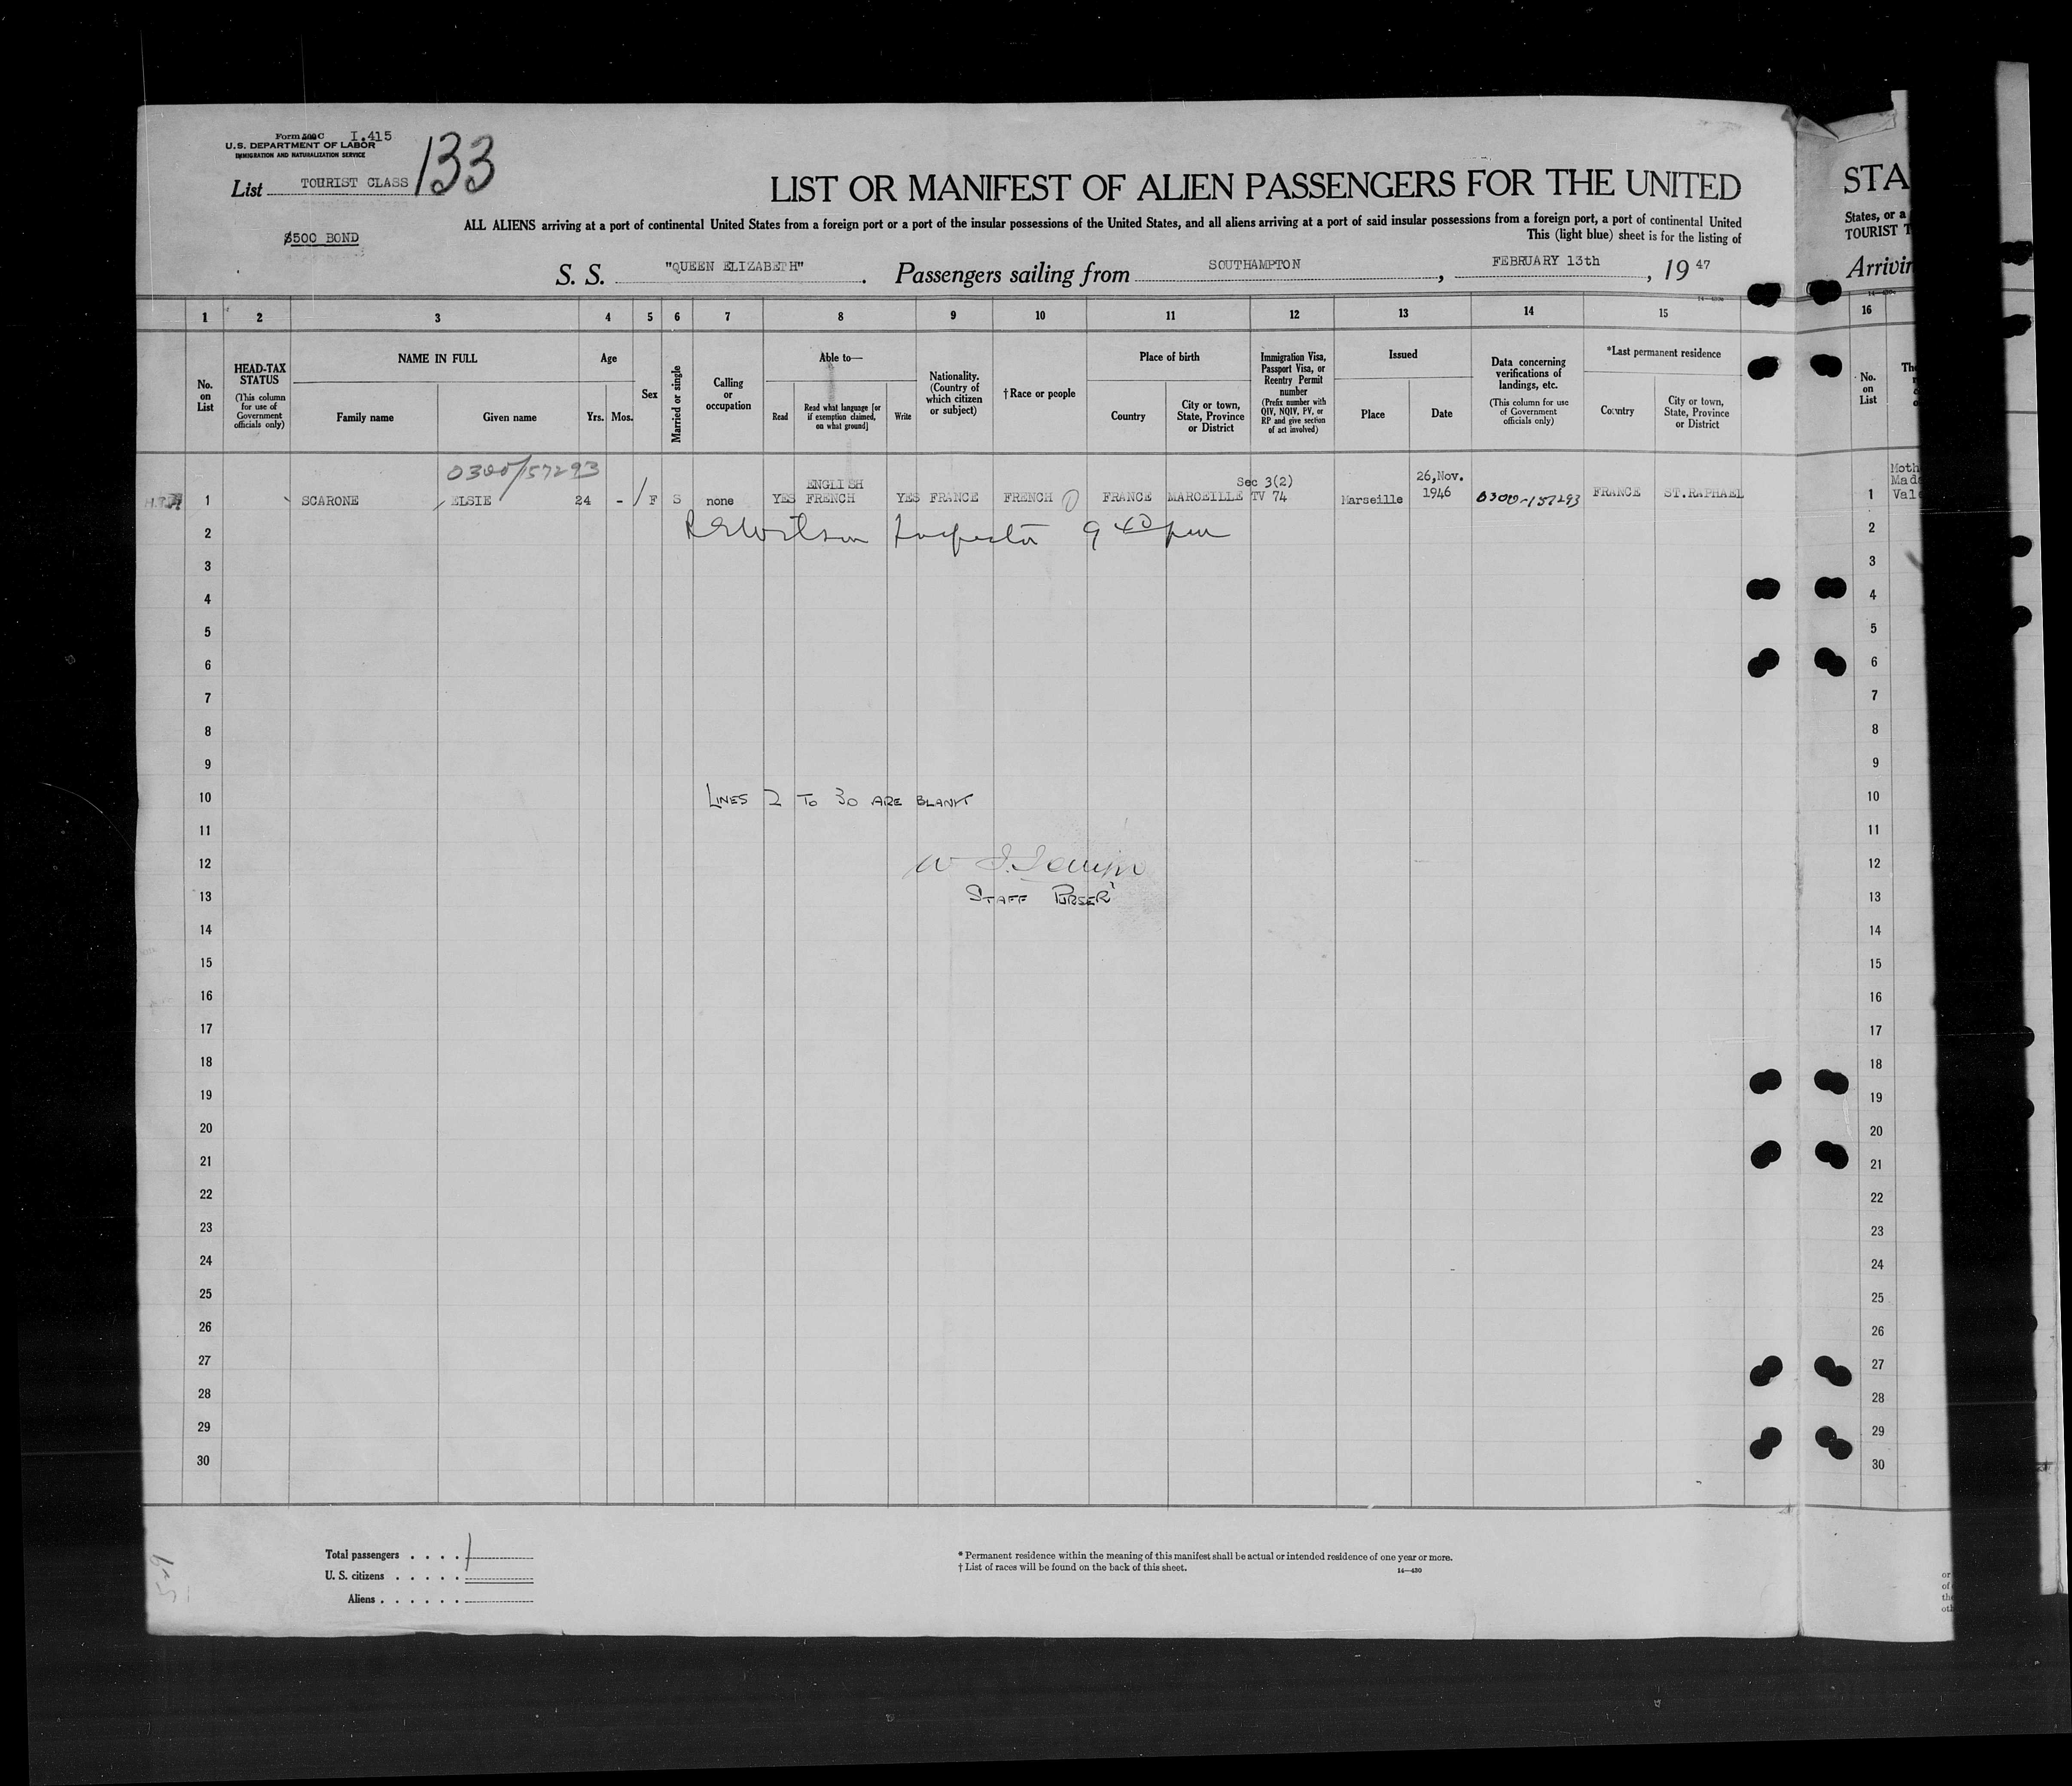 Form 500 C I.415
U.S. DEPARTMENT OF LABOR
IMMIGRATION AND NATURALIZATION SERVICE
List TOURIST CLASS 133
$500 BOND
LIST OR MANIFEST OF ALIEN PASSENGERS FOR THE UNITED
ALL ALIENS arriving at a port of continental United States from a foreign port or a port of the insular possessions of the United States, and all aliens arriving at a port of said insular possessions from a foreign port, a port of continental United
This (light blue) sheet is for the listing of
S. S. "QUEEN ELIZABETH". Passengers sailing from SOUTHAMPTON, FEBRUARY 13th, 19 47
STA
States, or a
TOURIST T
Arrivin
1 2 3 4 5 6 7 8 9 10 11 12 13 14 15 16
No. on List
HEAD-TAX STATUS (This column for use of Government officials only)
NAME IN FULL
Family name
Given name
Age
Yrs. Mos.
Sex
Married or single
Calling or occupation
Able to—
Read
Read what language [or if exemption claimed, on what ground]
Write
Nationality. (Country of which citizen or subject)
† Race or people
Place of birth
Country
City or town, State, Province or District
Immigration Visa, Passport Visa, or Reentry Permit number (Prefix number with QIV, NQIV, PV, or RP and give section of act involved)
Issued
Place
Date
Data concerning verifications of landings, etc. (This column for use of Government officials only)
*Last permanent residence
Country
City or town, State, Province or District
No. on List
0300/157293
ENGLISH Sec 3(2) 26,Nov.
1 SCARONE ELSIE 24 - F S none YES FRENCH YES FRANCE FRENCH FRANCE MARCEILLE TV 74 Marseille 1946 0300-157293 FRANCE ST.RAPHAEL 1
Moth
Mada
Vale
2 REWilson Inspector 9 40 pm 2
3 3
4 4
5 5
6 6
7 7
8 8
9 9
10 LINES 2 TO 30 ARE BLANK 10
11 11
12 12
13 STAFF PURSER 13
14 14
15 15
16 16
17 17
18 18
19 19
20 20
21 21
22 22
23 23
24 24
25 25
26 26
27 27
28 28
29 29
30 30
Total passengers . . . . 1
U. S. citizens . . . . .
Aliens . . . . . .
* Permanent residence within the meaning of this manifest shall be actual or intended residence of one year or more.
† List of races will be found on the back of this sheet. 14—430